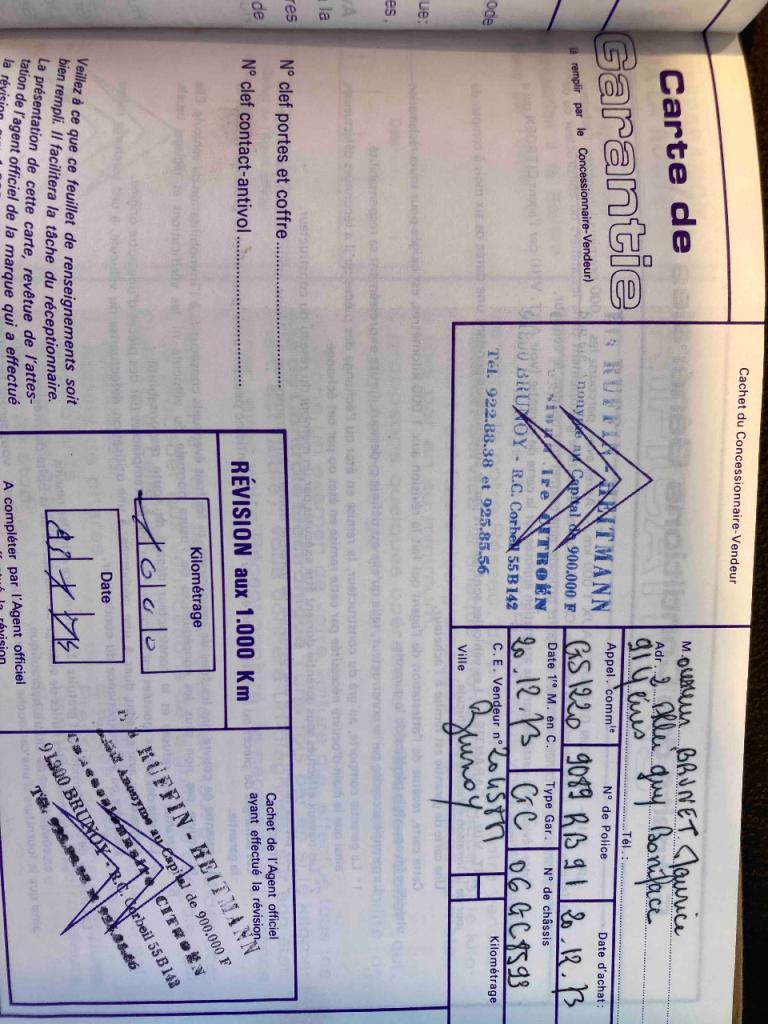 Carte de
Garantie
(à remplir par le Concessionnaire-Vendeur)
Cachet du Concessionnaire-Vendeur
RUFFIN - HEITMANN
Anonyme au Capital de 900.000 F
CITROËN
BRUNOY - R.C. Corbeil 55 B 142
Tél. 922.88.38 et 925.85.56
M. onsieur BRUNET Maurice
Adr. 2 allée Guy Boniface
91 Yerres Tél. :
Appel. commle N° de Police Date d'achat :
GS 1220 9089 RB 91 20.12.73
Date 1re M. en C. Type Gar. N° de châssis
20.12.73 GC 06 GC 8593
C. E. Vendeur n° Kilométrage
Ville Brunoy
N° clef portes et coffre
N° clef contact-antivol
Veillez à ce que ce feuillet de renseignements soit
bien rempli. Il facilitera la tâche du réceptionnaire.
La présentation de cette carte, revêtue de l'attes-
tation de l'agent officiel de la marque qui a effectué
RÉVISION aux 1.000 Km
Kilométrage
1000
Date
A compléter par l'Agent officiel
Cachet de l'Agent officiel
ayant effectué la révision
RUFFIN - HEITMANN
Anonyme au Capital de 900.000 F
Concessionnaire CITROËN
91800 BRUNOY - R.C. Corbeil 55 B 142